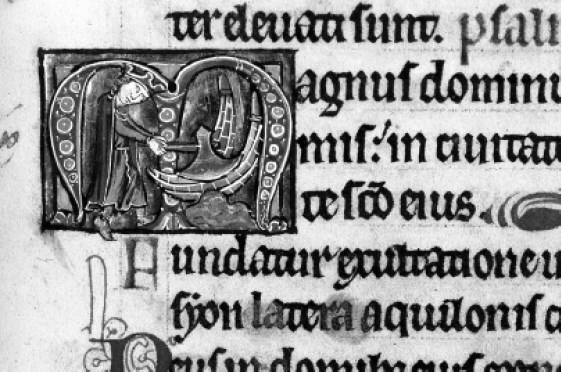 ter eleuati sunt. psal
Magnus dominu
mis: in ciuitat
te scõ eius.
Fundatur exultatione u
syon latera aquilonis c
Deus in domibus eius